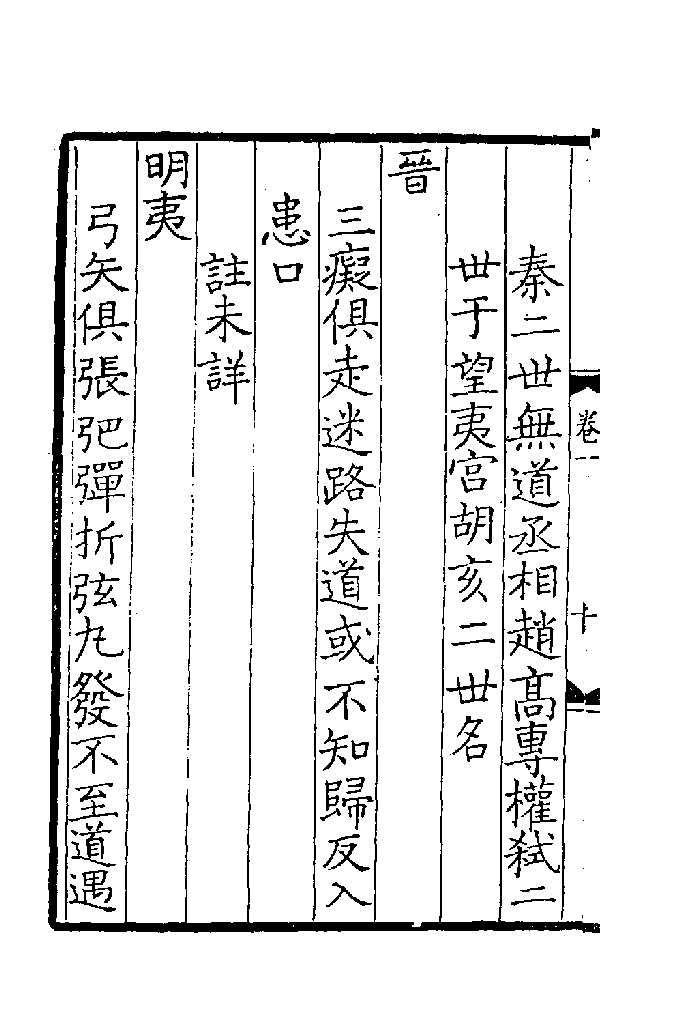 卷一
十
秦二世無道丞相趙髙專權弑二
世于望夷宫胡亥二世名
晉
三癡俱走迷路失道或不知歸反入
患口
註未詳
明夷
弓矢俱張弝彈折弦丸發不至道遇